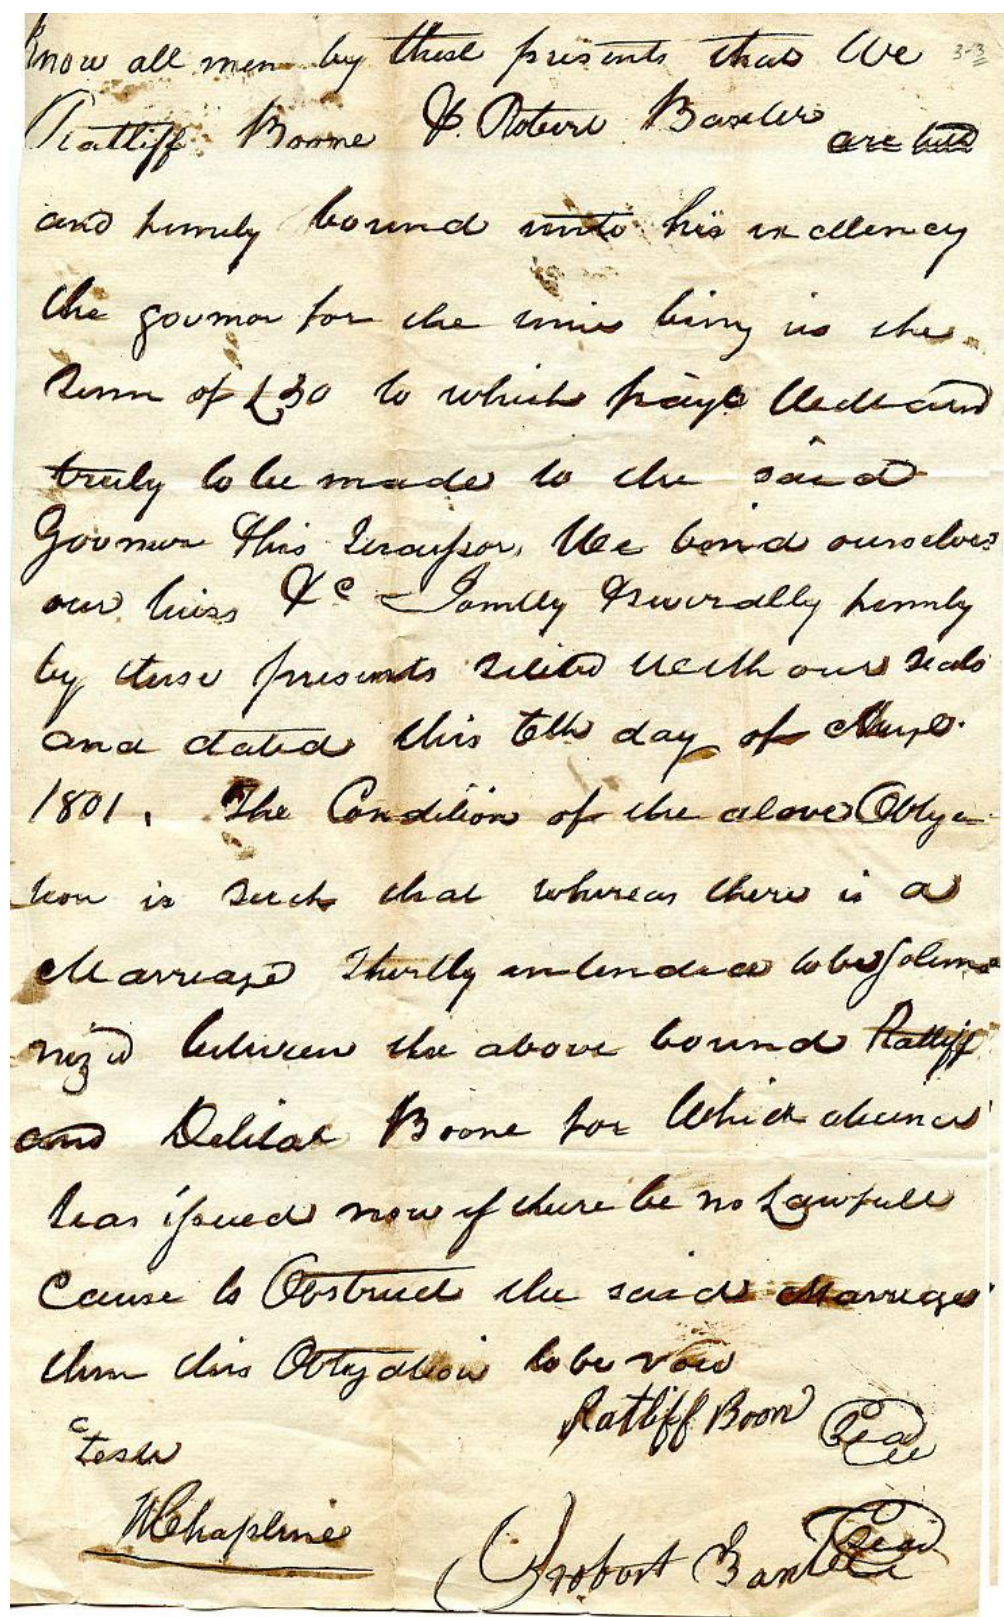 Know all men by these presents that We 3-3
Ratliff Boone & Robert Baxter are held
and firmly bound unto his excellency
the govmor for the time being in the
Sum of £30 to which paym Well and
truly to be made to the said
Govmor & his Successors, We bind ourselves
our heirs &c Jointly & severally firmly
by these presents Sealed With our Seals
and dated this 6th day of
1801. The Condition of the above Obliga
tion is Such that whereas there is a
Marriage Shortly intended to be Solem
niz'd between the above bound Ratliff
and Delilah Boone for Which a licence
has issued now if there be no Lawfull
Cause to Obstruct the said Marriage
then this Obligation to be void
Ratliff Boon Seal
Teste
W Chapline
Robert Baxter Seal